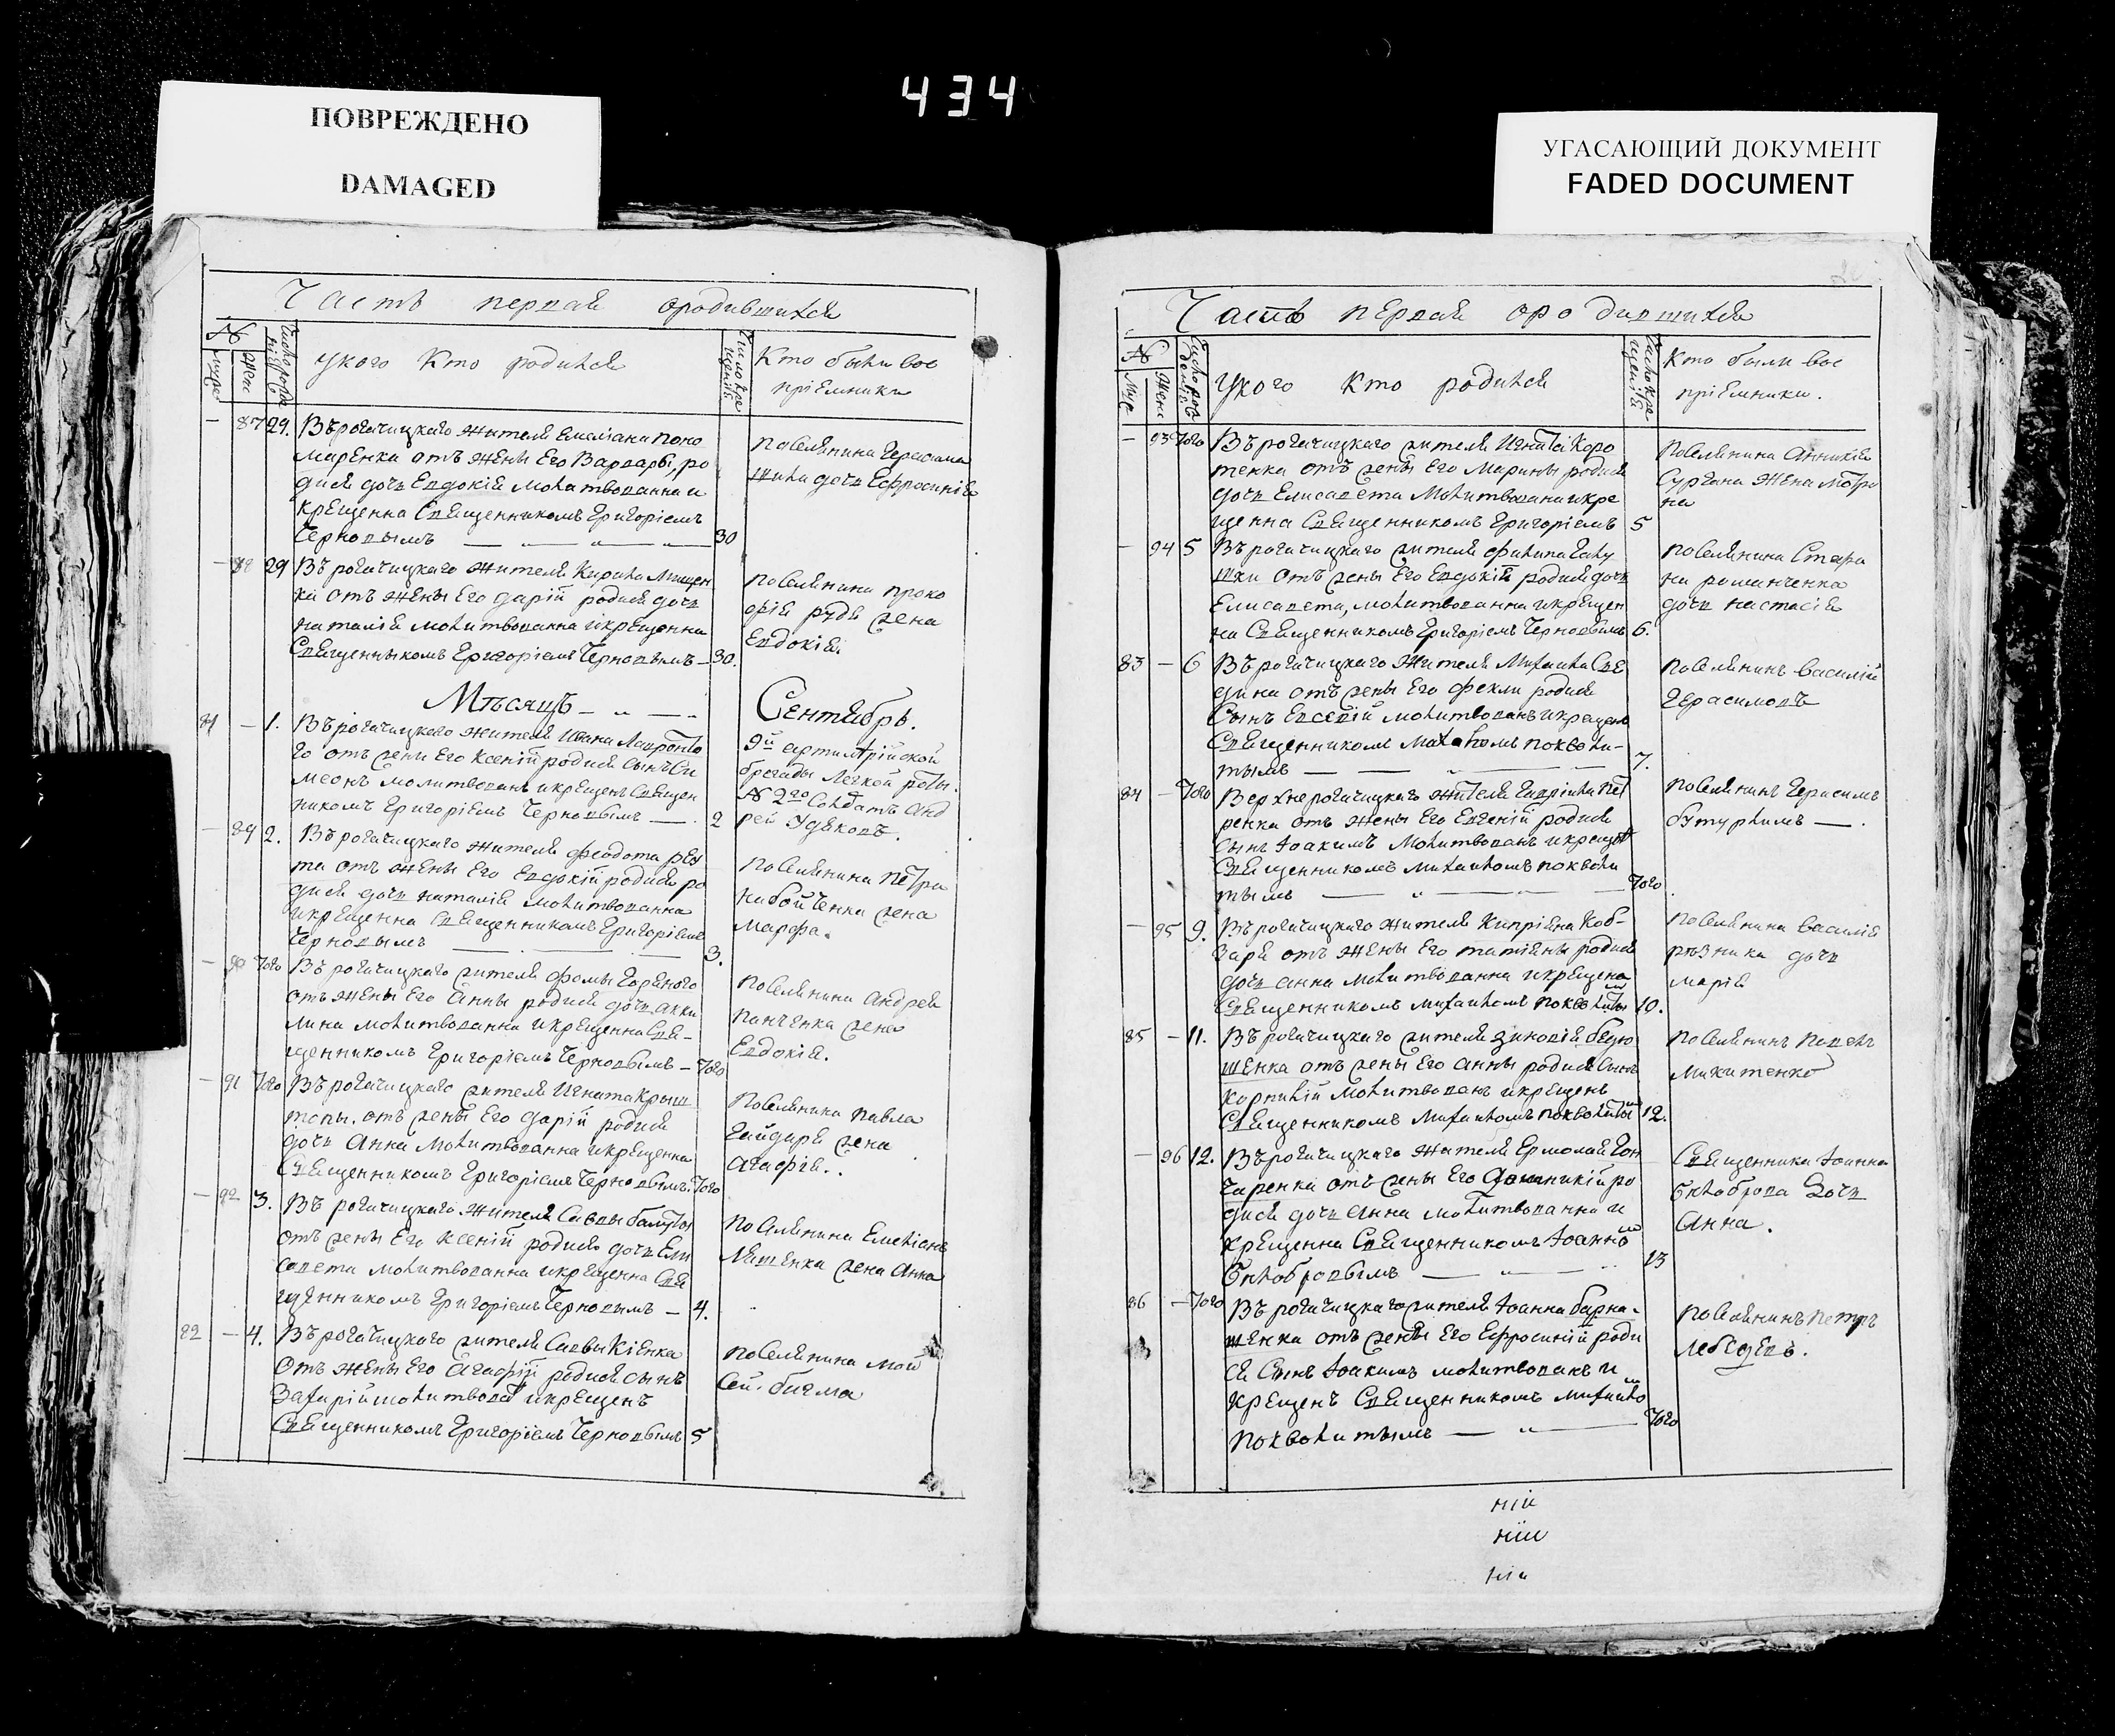 434
ПОВРЕЖДЕНО
DAMAGED
УГАСАЮЩИЙ ДОКУМЕНТ
FADED DOCUMENT
Часть первая ородившихся
№
муже
жен
Число рожденія
укого Кто родился
Число крещенія
Кто были вос
пріемники
— 87 29. Въ рогачицкаго жителя Емеліана Поно
маренка отъ жены Его Варвары, ро
дися дочь Евдокія молитвованна и
крещенна Священникомъ Григоріемъ
Чернодымъ — 30
поселянина Герасима
дочь Ефросинія
— 88 29 Въ рогачицкаго жителя Кирила Мищен
ка отъ жены Его Дарій родися дочь
наталія молитвованна икрещенна
Священникомъ Григоріемъ Чернодымъ — 30.
поселянина проко
фія руды жена
Евдокія.
Мѣсяцъ — Сентябрь.
81 — 1. Въ рогачицкаго жителя Ивана
го отъ жены Его Ксеній родися сынъ Си
меонъ молитвованъ икрещенъ Священ
никомъ Григоріемъ Чернодымъ — 2
9й артилерійской
бригады Легкой роты
№ 2го Солдатъ Анд
рей
— 89 2. Въ рогачицкаго жителя Феодота
та отъ жены Его Евдокій родися ро
дися дочь наталія молитвованна
икрещенна Священникомъ Григоріемъ
Чернодымъ — 3.
поселянина Петра
набойченка жена
марфа.
— 90 Того Въ рогачицкаго жителя Фомы Горяного
отъ жены Его Анны родися дочь акки
лина молитвованна икрещенна Свя-
щенникомъ Григоріемъ Чернодымъ — Того
поселянина Андрея
панченка жена
Евдокія.
— 91 Того Въ рогачицкаго жителя Игната Крыш
топы. отъ жены Его Дарій родися
дочь Анна молитвованна икрещенна
Священникомъ Григоріемъ Чернодымъ. Того
поселянина павла
гайдаря жена
агафія.
— 92 3. Въ рогачицкаго жителя Саввы
отъ жены Его Ксеній родися дочь Ели
савета молитвованна икрещенна Свя
щенникомъ Григоріемъ Чернодымъ — 4.
поселянина Емеліана
жена Анна
82 — 4. Въ рогачицкаго жителя Саввы Кіенка
Отъ жены Его Агафій родися сынъ
Захарій молитвованъ икрещенъ
Священникомъ Григоріемъ Чернодымъ 5
поселянина мой
сей бигма
Часть первая оро дившихся
№
муж
жен
Число рожденія
укого кто родился
Число крещенія
Кто были вос
пріемники.
— 93 Того Въ рогачицкаго жителя Игнатія Коро
тенка отъ жены Его Марины родися
дочь Елисавета молитвована икре
щенна Священникомъ Григоріемъ 5
поселянина Анникія
Сургана жена мотро
на
— 94 5 Въ рогачицкаго жителя Филипа Галу
шки отъ жены Его Евдокій родися дочь
Елисавета, молитвованна икрещен
на Священникомъ Григоріемъ Чернодымъ 6.
поселянина Стефа
на романченка
дочь настасія
83 — 6 Въ рогачицкаго жителя Михаила Све
дина отъ жены Его Феклы родися
Сынъ Евсевій молитвованъ икрещенъ
Священникомъ Михаиломъ поквали-
тымъ — 7.
поселянинъ василій
герасимовъ
84 — Того Верхнерогачицкаго жителя Гавріила Пет
ренка отъ жены Его Евгеній родися
сынъ Іоакимъ молитвованъ икрещенъ
Священникомъ михаиломъ поквали
тымъ — Того
поселянинъ герасимъ
бутурлимъ — .
— 95 9. Въ рогачицкаго жителя Кипріяна Коб-
заря отъ жены Его татіяны родися
дочь анна молитвованна икрещена
Священникомъ михаиломъ поквалиты 10.
поселянина василія
рѣзника дочь
марія
85 — 11. Въ рогачицкаго жителя зиновій бедю
шенка отъ жены Его анны родися сынъ
корнилій молитвованъ икрещенъ
Священникомъ михаиломъ поквалиты 12.
поселянинъ павелъ
микитенко
— 96 12. Въ рогачицкаго жителя Ермолая Гон
чаренка отъ жены Его Домникій ро
дися дочь анна молитвованна и
крещенна Священникомъ Іоанно
Билобровымъ — 13
Священника Іоанна
билоброва дочь
анна.
86 — Того Въ рогачицкаго жителя Іоанна барна-
шенка отъ жены Его Ефросиній роди
ся сынъ Іоакимъ молитвованъ и
крещенъ Священникомъ михаило
поквалитымъ — Того
поселянинъ петръ
лебедевъ.
ній
ній
ній